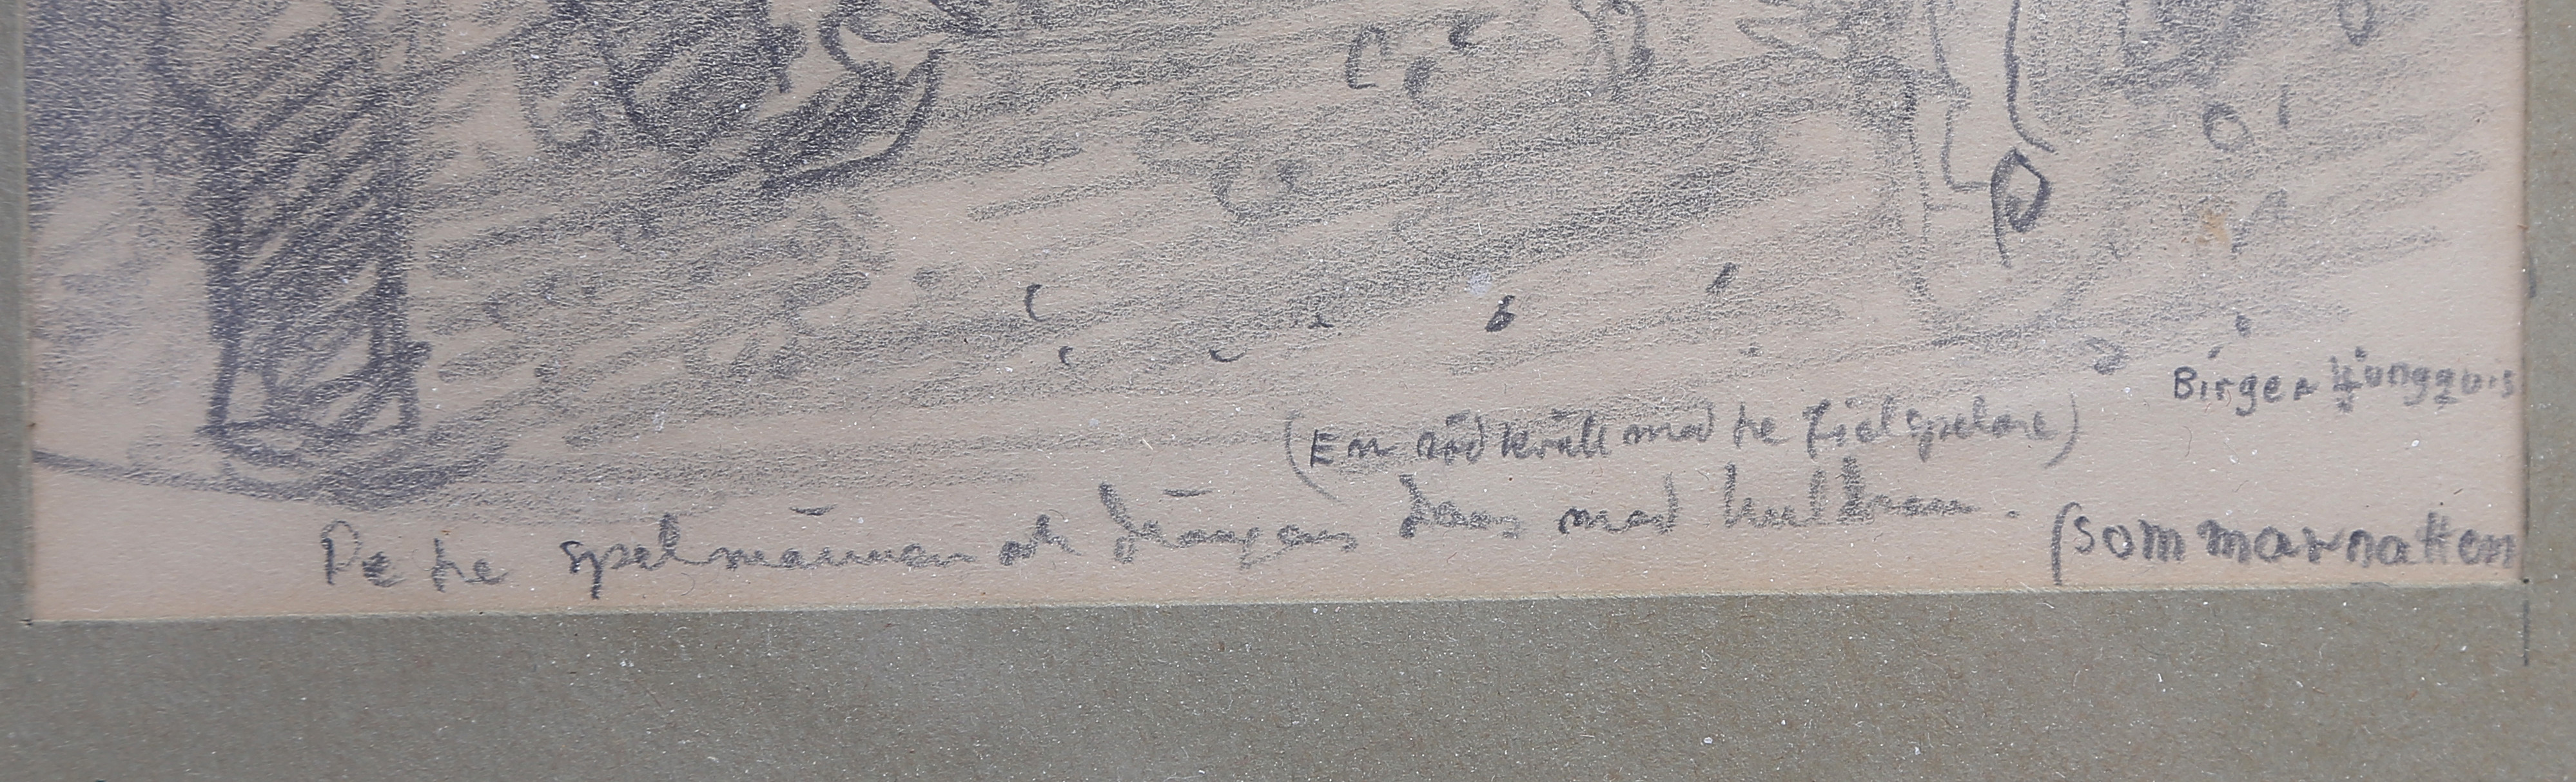 Birger Ljungquis
(En röd kväll med tre fiolspelare)
De tre spelmännen och drängens dans med huldran.
(sommarnatten